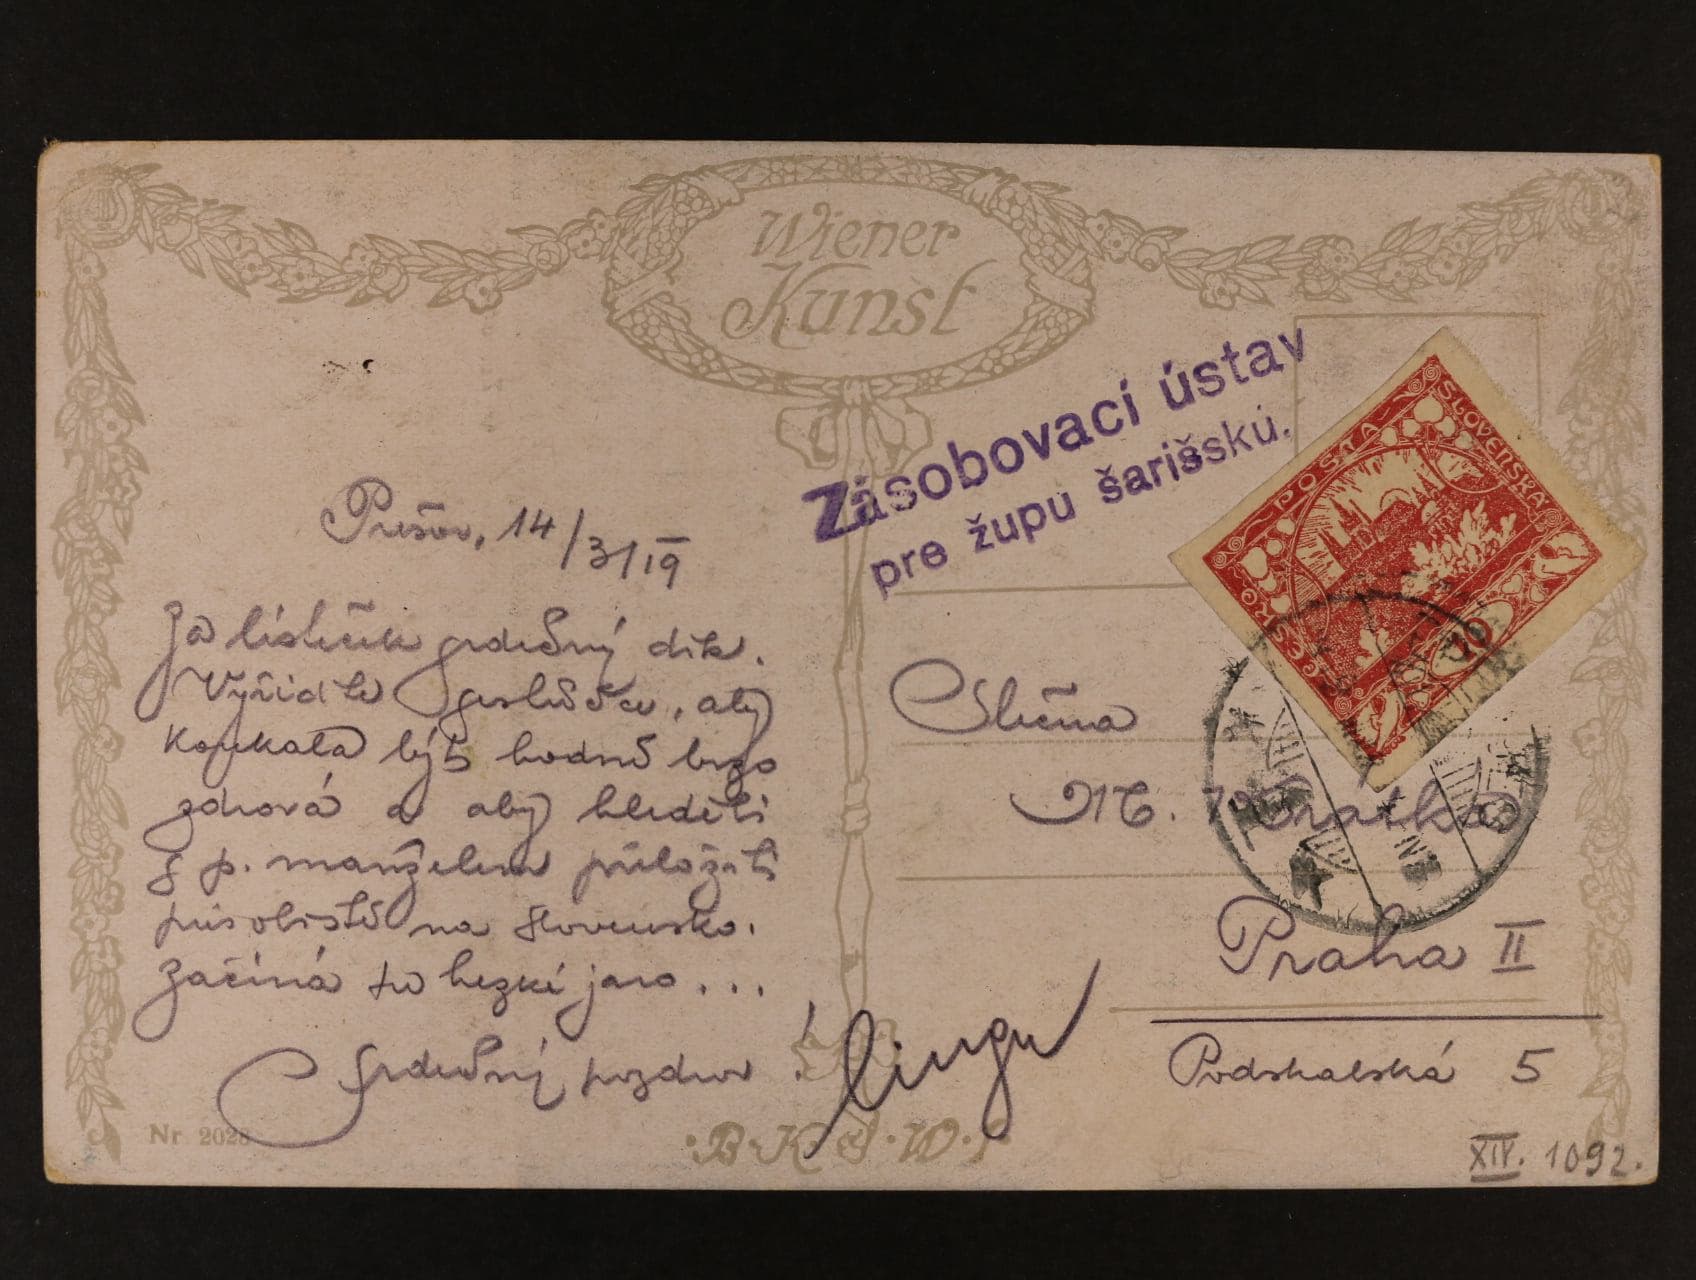 Wiener
Kunst
Zásobovací ústav
pre župu šarišskú.
POŠTA
ČESKO
SLOVENSKÁ
10
Prešov, 14/3 19
Za lísteček srdečný dík.
Vyřiďte, aby
koukala být hodně brzo
zdravá a aby hleděli
s p. manželem přeložiti
působiště na Slovensko.
Začíná tu hezké jaro...
Srdečný pozdrav!
Slečna
M.
Praha II
Podskalská 5
Nr 2028
B.K.W.I
XIV. 1092.